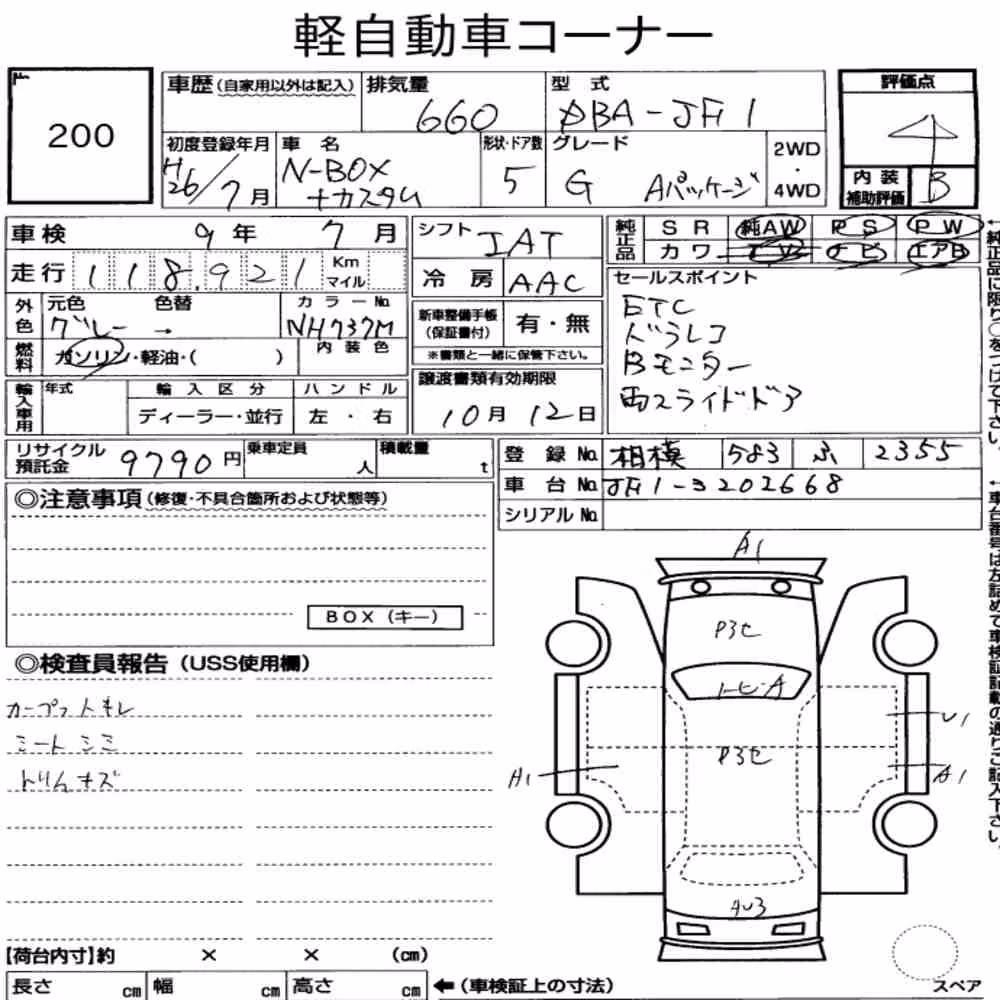 軽自動車コーナー
200
車歴(自家用以外は記入) 排気量 型式 評価点
660 DBA-JF1 4
初度登録年月 車名 形状・ドア数 グレード 2WD・4WD
H26/7月 N-BOX +カスタム 5 G Aパッケージ
内装補助評価 B
車検 9年 7月
シフト IAT
純正品 SR 純AW PS PW
カワ TV ナビ エアB
走行 118,921 Km マイル
冷房 AAC
セールスポイント
ETC
ドラレコ
Bモニター
両スライドドア
外色 元色 色替 カラーNo.
グレー → NH737M
新車整備手帳(保証書付) 有・無
※書類と一緒に保管下さい。
燃料 ガソリン・軽油・( ) 内装色
譲渡書類有効期限
10月 12日
輸入車用 年式 輸入区分 ハンドル
ディーラー・並行 左・右
リサイクル預託金 9790円 乗車定員 人 積載量 t
登録No. 相模 583 ふ 2355
車台No. JF1-3202668
シリアルNo.
◎注意事項(修復・不具合箇所および状態等)
BOX(キー)
◎検査員報告(USS使用欄)
カープットキレ
シートシミ
トリムキズ
A1
P3セ
トビA
U1
P3セ
A1
A1
AU3
【荷台内寸】約 × × (cm)
長さ cm 幅 cm 高さ cm
←(車検証上の寸法)
スペア
←純正品に限り○をつけて下さい。
←車台番号は左詰めで車検証記載の通りご記入下さい。